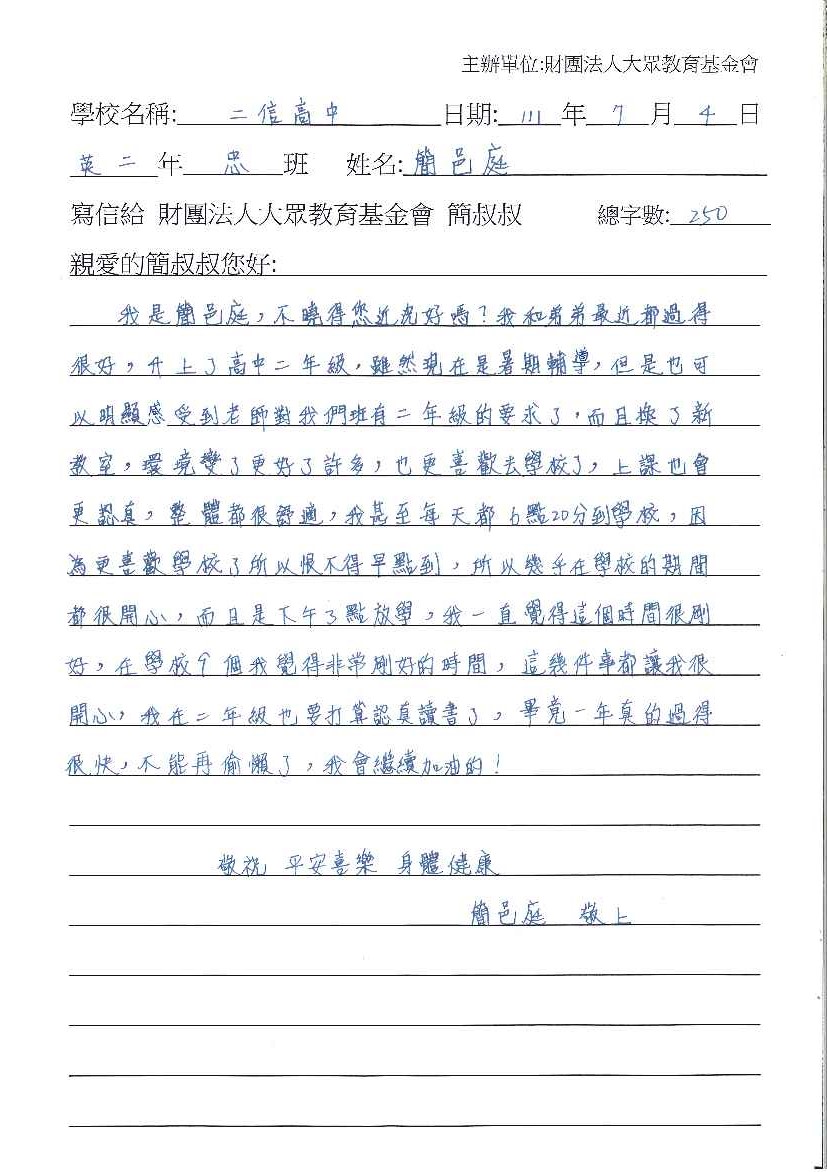 主辦單位:財團法人大眾教育基金會
學校名稱: 二信高中 日期: 111 年 7 月 4 日
英二 年 忠 班 姓名: 簡邑庭
寫信給 財團法人大眾教育基金會 簡叔叔 總字數: 250
親愛的簡叔叔您好:
我是簡邑庭，不曉得您近況好嗎？我和弟弟最近都過得
很好，升上了高中二年級，雖然現在是暑期輔導，但是也可
以明顯感受到老師對我們班有二年級的要求了，而且換了新
教室，環境變了更好了許多，也更喜歡去學校了，上課也會
更認真，整體都很舒適，我甚至每天都6點20分到學校，因
為更喜歡學校了所以恨不得早點到，所以幾乎在學校的期間
都很開心，而且是下午3點放學，我一直覺得這個時間很剛
好，在學校9個我覺得非常剛好的時間，這幾件事都讓我很
開心，我在二年級也要打算認真讀書了，畢竟一年真的過得
很快，不能再偷懶了，我會繼續加油的！
敬祝 平安喜樂 身體健康
簡邑庭 敬上